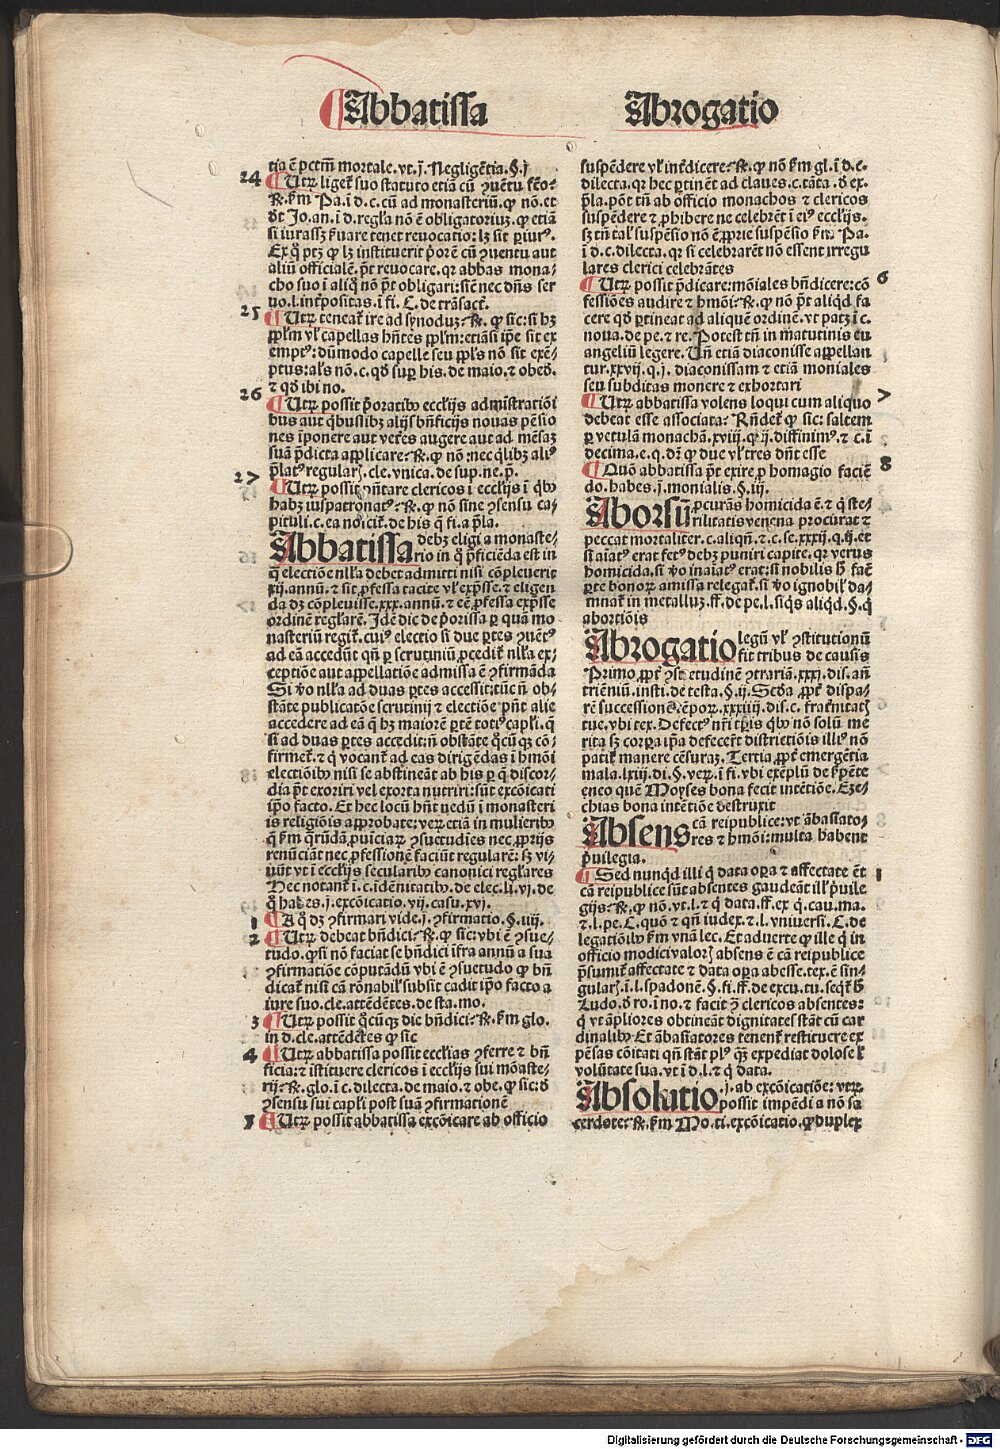 Abbatissa Abrogatio
tia ē pctm̄ mortale. vt. j. Negligētia. §. j
24 ¶ Utrꝫ liget suo statuto etiā cū ꝯuētu
. ẜm Pa. i d. c. cū ad monasteriū. ꝙ nō. et
Jo. an. i d. regl̓a nō ē obligatoriuꝫ. ꝙ etiā
si iurassꝫ ẜuare tenet reuocatio: lꝫ sit ꝑiurꝰ.
Ex q̊ ptꝫ ꝙ lꝫ instituerit p̓orē cū ꝯuentu aut
aliū officialē. p̄t reuocare. qꝛ abbas mona⸗
cho suo i aliq̊ nō p̄t obligari: sic̄ nec dn̄s ser
uo. l. int̓positas. i fi. C. de trāsact̄.
25 ¶ Utrꝫ teneat̄ ire ad synoduꝫ. ℟. ꝙ sic: si hꝫ
ppl̓m vl̓ capellas hn̄tes ppl̓m: etiāsi ip̄e sit ex
emptꝰ: dūmodo capelle seu ppl̓s nō sit exē⸗
ptus: al̓s nō. c. qd̓ suꝑ his. de maio. ⁊ obed̓.
⁊ qd̓ ibi no.
26 ¶ Utrꝫ possit p̓oratibꝰ eccl̓ijs admīstratiōi
bus aut qͥbuslibꝫ alijs bn̄ficijs nouas pēsio
nes iponere aut vet̓es augere aut ad mēsaꝫ
suā p̓dicta applicare. ℟. ꝙ nō: nec qͥlibꝫ aliꝰ
p̄latꝰ regularꝭ. cle. vnica. de sup. ne. p̄.
27 ¶ Utrꝫ possit p̄n̄tare clericos i eccl̓ijs i qͥbꝰ
habꝫ iuspatronatꝰ. ℟. ꝙ nō sine ꝯsensu ca⸗
pituli. c. ea noscit̄. de his q̄ fi. a p̄la.
Abbatissa debꝫ eligi a monaste⸗
rio in q̊ p̄ficiēda est in
q̄ electiōe nl̓la debet admitti nisi cōpleuerit
xij. annū. ⁊ sit ꝓfessa tacite vl̓ exp̄sse. ⁊ eligen
da dꝫ cōpleuisse. xxx. annū. ⁊ eē ꝓfessa exp̄sse
ordinē regl̓arē. Idē dic de p̓orissa ꝑ quā mo
nasteriū regit̄. cuiꝰ electio si due ꝑtes ꝯuētꝰ
ad eā accedūt qn̄ ꝑ scrutiniū ꝓcedit̄ nl̓la ex⸗
ceptiōe aut appellatiōe admissa ē ꝯfirmāda
Si v̓o nl̓la ad duas ꝑtes accessit: tūc n̄ ob⸗
stāte publicatōe scrutinij ⁊ electiōe pn̄t alie
accedere ad eā q̄ hꝫ maiorē ꝑtē totiꝰ capl̓i. q̄
si ad duas ꝑtes accedit: n̄ obstāte q̊cūqꝫ cō⸗
firmet̄. ⁊ q̄ vocant̄ ad eas dirigēdas i hmōi
electiōibꝰ nisi se abstineāt ab his ꝑ q̄ discor⸗
dia p̄t exoriri vel exorta nutriri: sūt excōicati
ip̄o facto. Et hec locū hn̄t nedū i monasteri
is religiōis approbate: veꝝ etiā in mulieribꝰ
q̄ ẜm qrūdā ꝓuīciaꝝ ꝯsuetudies nec ꝓprijs
renūciāt nec ꝓfessionē faciūt regularē: sꝫ vi⸗
uūt vt i eccl̓ijs secularibꝰ canonici regl̓ares
Hec notant̄ i. c. idēnitatibꝰ. de elec. li. vj. de
q̊ habes. j. excōicatio. vij. casu. xvj.
1 ¶ A q̊ dꝫ ꝯfirmari vide. j. ꝯfirmatio. §. iiij.
2 ¶ Utrꝫ debeat bn̄dici. ℟. ꝙ sic: vbi ē ꝯsue⸗
tudo. ꝙ si nō faciat se bn̄dici ifra annū a sua
ꝯfirmatiōe cōputādū vbi ē ꝯsuetudo ꝙ bn̄
dicat̄ nisi cā rōnabil̓ subsit cadit ip̄o facto a
iure suo. cle. attēdētes. de sta. mo.
3 ¶ Utrꝫ possit q̊cūqꝫ die bn̄dici. ℟. ẜm glo.
in d. cle. attēdētes ꝙ sic
4 ¶ Utrꝫ abbatissa possit eccl̓ias ꝯferre ⁊ bn̄
ficia: ⁊ istituere clericos i eccl̓ijs sui mōaste⸗
rij. ℟. glo. i c. dilecta. de maio. ⁊ obe. ꝙ sic: d̓
ꝯsensu sui capl̓i post suā ꝯfirmationē
5 ¶ Utrꝫ possit abbatissa excōicare ab officio
suspēdere vl̓ int̓dicere. ℟. ꝙ nō ẜm gl. i d. c.
dilecta. qꝛ hec ꝑtinēt ad claues. c. tāta. d̓ ex.
p̄la. pōt tn̄ ab officio monachos ⁊ clericos
suspēdere ⁊ ꝓhibere ne celebrēt i eiꝰ eccl̓ijs.
sꝫ tn̄ tal̓ suspēsio nō ē ꝓprie suspēsio ẜm Pa.
i d. c. dilecta. qꝛ si celebrarēt nō essent irregu
lares clerici celebrātes
6 ¶ Utrꝫ possit p̄dicare: mōiales bn̄dicere: cō
fessiōes audire ⁊ hmōi. ℟. ꝙ nō p̄t aliqd̓ fa
cere qd̓ ꝑtineat ad aliquē ordinē. vt patꝫ i c.
noua. de pe. ⁊ re. Potest tn̄ in matutinis eu
angeliū legere. Un̄ etiā diaconisse appellan
tur. xxvij. q. j. diaconissam ⁊ etiā moniales
seu subditas monere ⁊ exhortari
7 ¶ Utrꝫ abbatissa volens loqui cum aliquo
debeat esse associata. Rn̄det̄ ꝙ sic: saltem
ꝑ vetulā monachā. xviij. q. ij. diffinimꝰ. ⁊ c. i
decima. e. q. dꝛ ꝙ due vl̓ tres dn̄t esse
8 ¶ Quō abbatissa p̄t exire ꝓ homagio faciē
do. habes. j. monialis. §. iij.
Aborsū ꝓcurās homicida ē. ⁊ q̄ ste⸗
rilitatis venena procurat ⁊
peccat mortaliter. c. aliqn̄. ⁊ c. se. xxxij. q. ij. et
si aīatꝰ erat fetꝰ debꝫ puniri capite. qꝛ verus
homicida. si v̓o inaīatꝰ erat: si nobilis
ꝑte bonoꝝ amissa relegat̄. si v̓o ignobil̓ da⸗
mnat̄ in metalluꝫ. ff. de pe. l. siqͥs aliqd̓. §. q̄
abortiōis
Abrogatio legū vl̓ ꝯstitutionū
fit tribus de causis
Primo. ꝓpt̓ ꝯsuetudinē ꝯtrariā. xxxj. dis. an̄
triēniū. insti. de testa. §. ij. Scd̓a ꝓpt̓ dispa⸗
rē successionē tēpoꝝ. xxxiiij. dis. c. frat̓nitatꝭ
tue. vbi tex. Defectꝰ nr̄i tp̄is qͥbꝰ nō solū me
rita sꝫ corꝑa ip̄a defecer̄t districtiōis illiꝰ nō
patit̄ manere cēsuraꝫ. Tertia ꝓpt̓ emergētia
mala. lxiij. di. §. veꝝ. i fi. vbi exēplū de s̓pēte
eneo quē Moyses bona fecit intētiōe. Eze⸗
chias bona intētiōe destruxit
Absens cā reipublice: vt ābasiato⸗
res ⁊ hmōi: multa habent
p̓uilegia.
1 ¶ Sed nunqd̓ illi q̄ data oꝑa ⁊ affectate ēt
cā reipublice sūt absentes gaudeāt ill̓ p̓uile
gijs. ℟. ꝙ nō. vt. l. ⁊ q̄ data. ff. ex q̄. cau. ma.
⁊. l. pe. C. quō ⁊ qn̄ iudex. ⁊ l. vniuersi. C. de
legatiōibꝰ ẜm vnā lec. Et aduerte ꝙ ille q̄ in
officio modici valorꝭ absens ē cā reipublice
p̄sumit̄ affectate ⁊ data oꝑa abesse. tex. ē sin⸗
gularꝭ. i. l. spadonē. §. fi. ff. de excu. tu. seqt̄
Ludo. d̓ ro. i no. ⁊ facit ꝯ̄ clericos absentes:
q̄ vt āpliores obtineāt dignitates stāt cū car
dinalibꝰ Et ābasiatores tenent̄ restituere ex
pēsas cōitati qn̄ stāt plꝰ qꝫ expediat dolose
volūtate sua. vt i d. l. ⁊ q̄ data.
Absolutio . j. ab excōicatiōe: vtrꝫ
possit impēdi a nō sa
cerdote. ℟. ẜm Mo. ti. excōicatio. ꝙ duplex
Digitalisierung gefördert durch die Deutsche Forschungsgemeinschaft - DFG